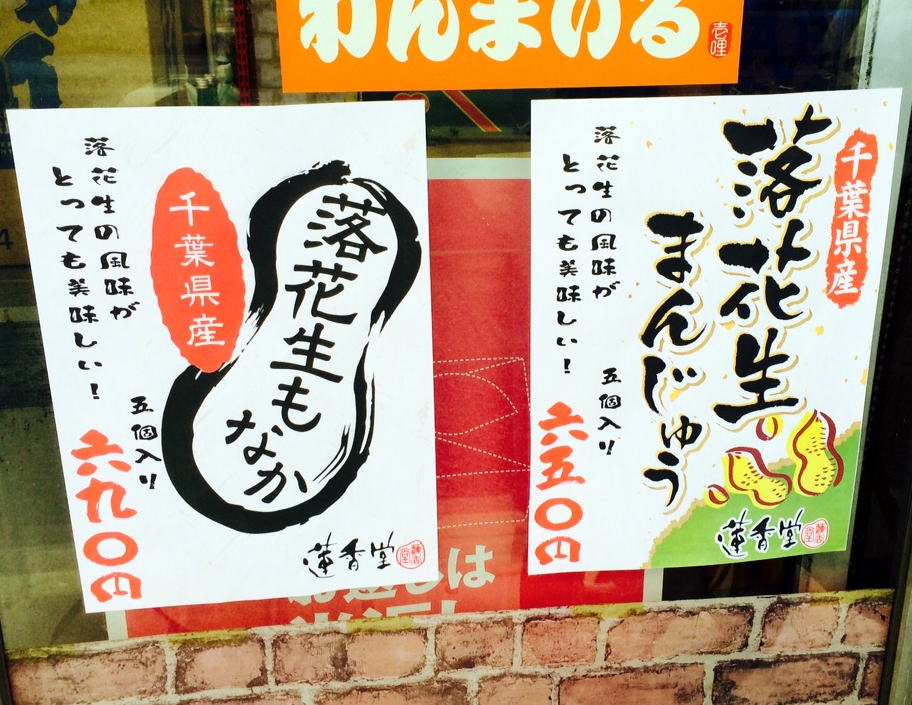 わんまいる
壱哩
千葉県産
落花生
まんじゅう
落花生の風味が
とっても美味しい!
五個入り
六五〇円
蓮香堂
千葉県産
落花生も
なか
落花生の風味が
とっても美味しい!
五個入り
六九〇円
蓮香堂